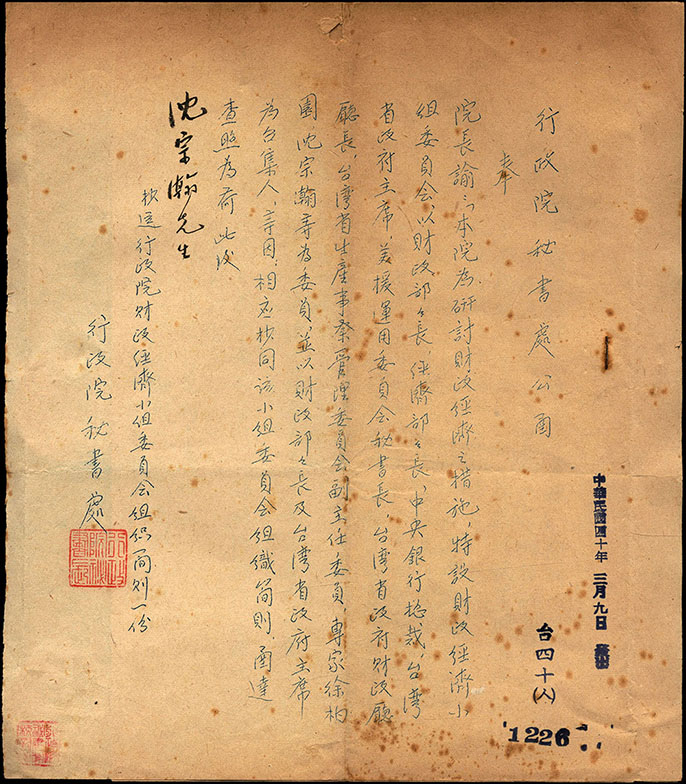 行政院秘書處公函
中華民國四十年三月九日發出
台四十(人)
1226
奉
院長諭：「本院為研討財政經濟之措施，特設財政經濟小
組委員會，以財政部々長、經濟部々長、中央銀行總裁、台灣
省政府主席、美援運用委員會秘書長、台灣省政府財政廳
廳長、台灣省生產事業管理委員會副主任委員、專家徐柏
園沈宗瀚等為委員並以財政部々長及台灣省政府主席
為召集人」等因；相應抄同該小組委員會組織簡則函達
查照為荷此致
沈宗瀚先生
抄送行政院財政經濟小組委員會組織簡則一份
行政院秘書處